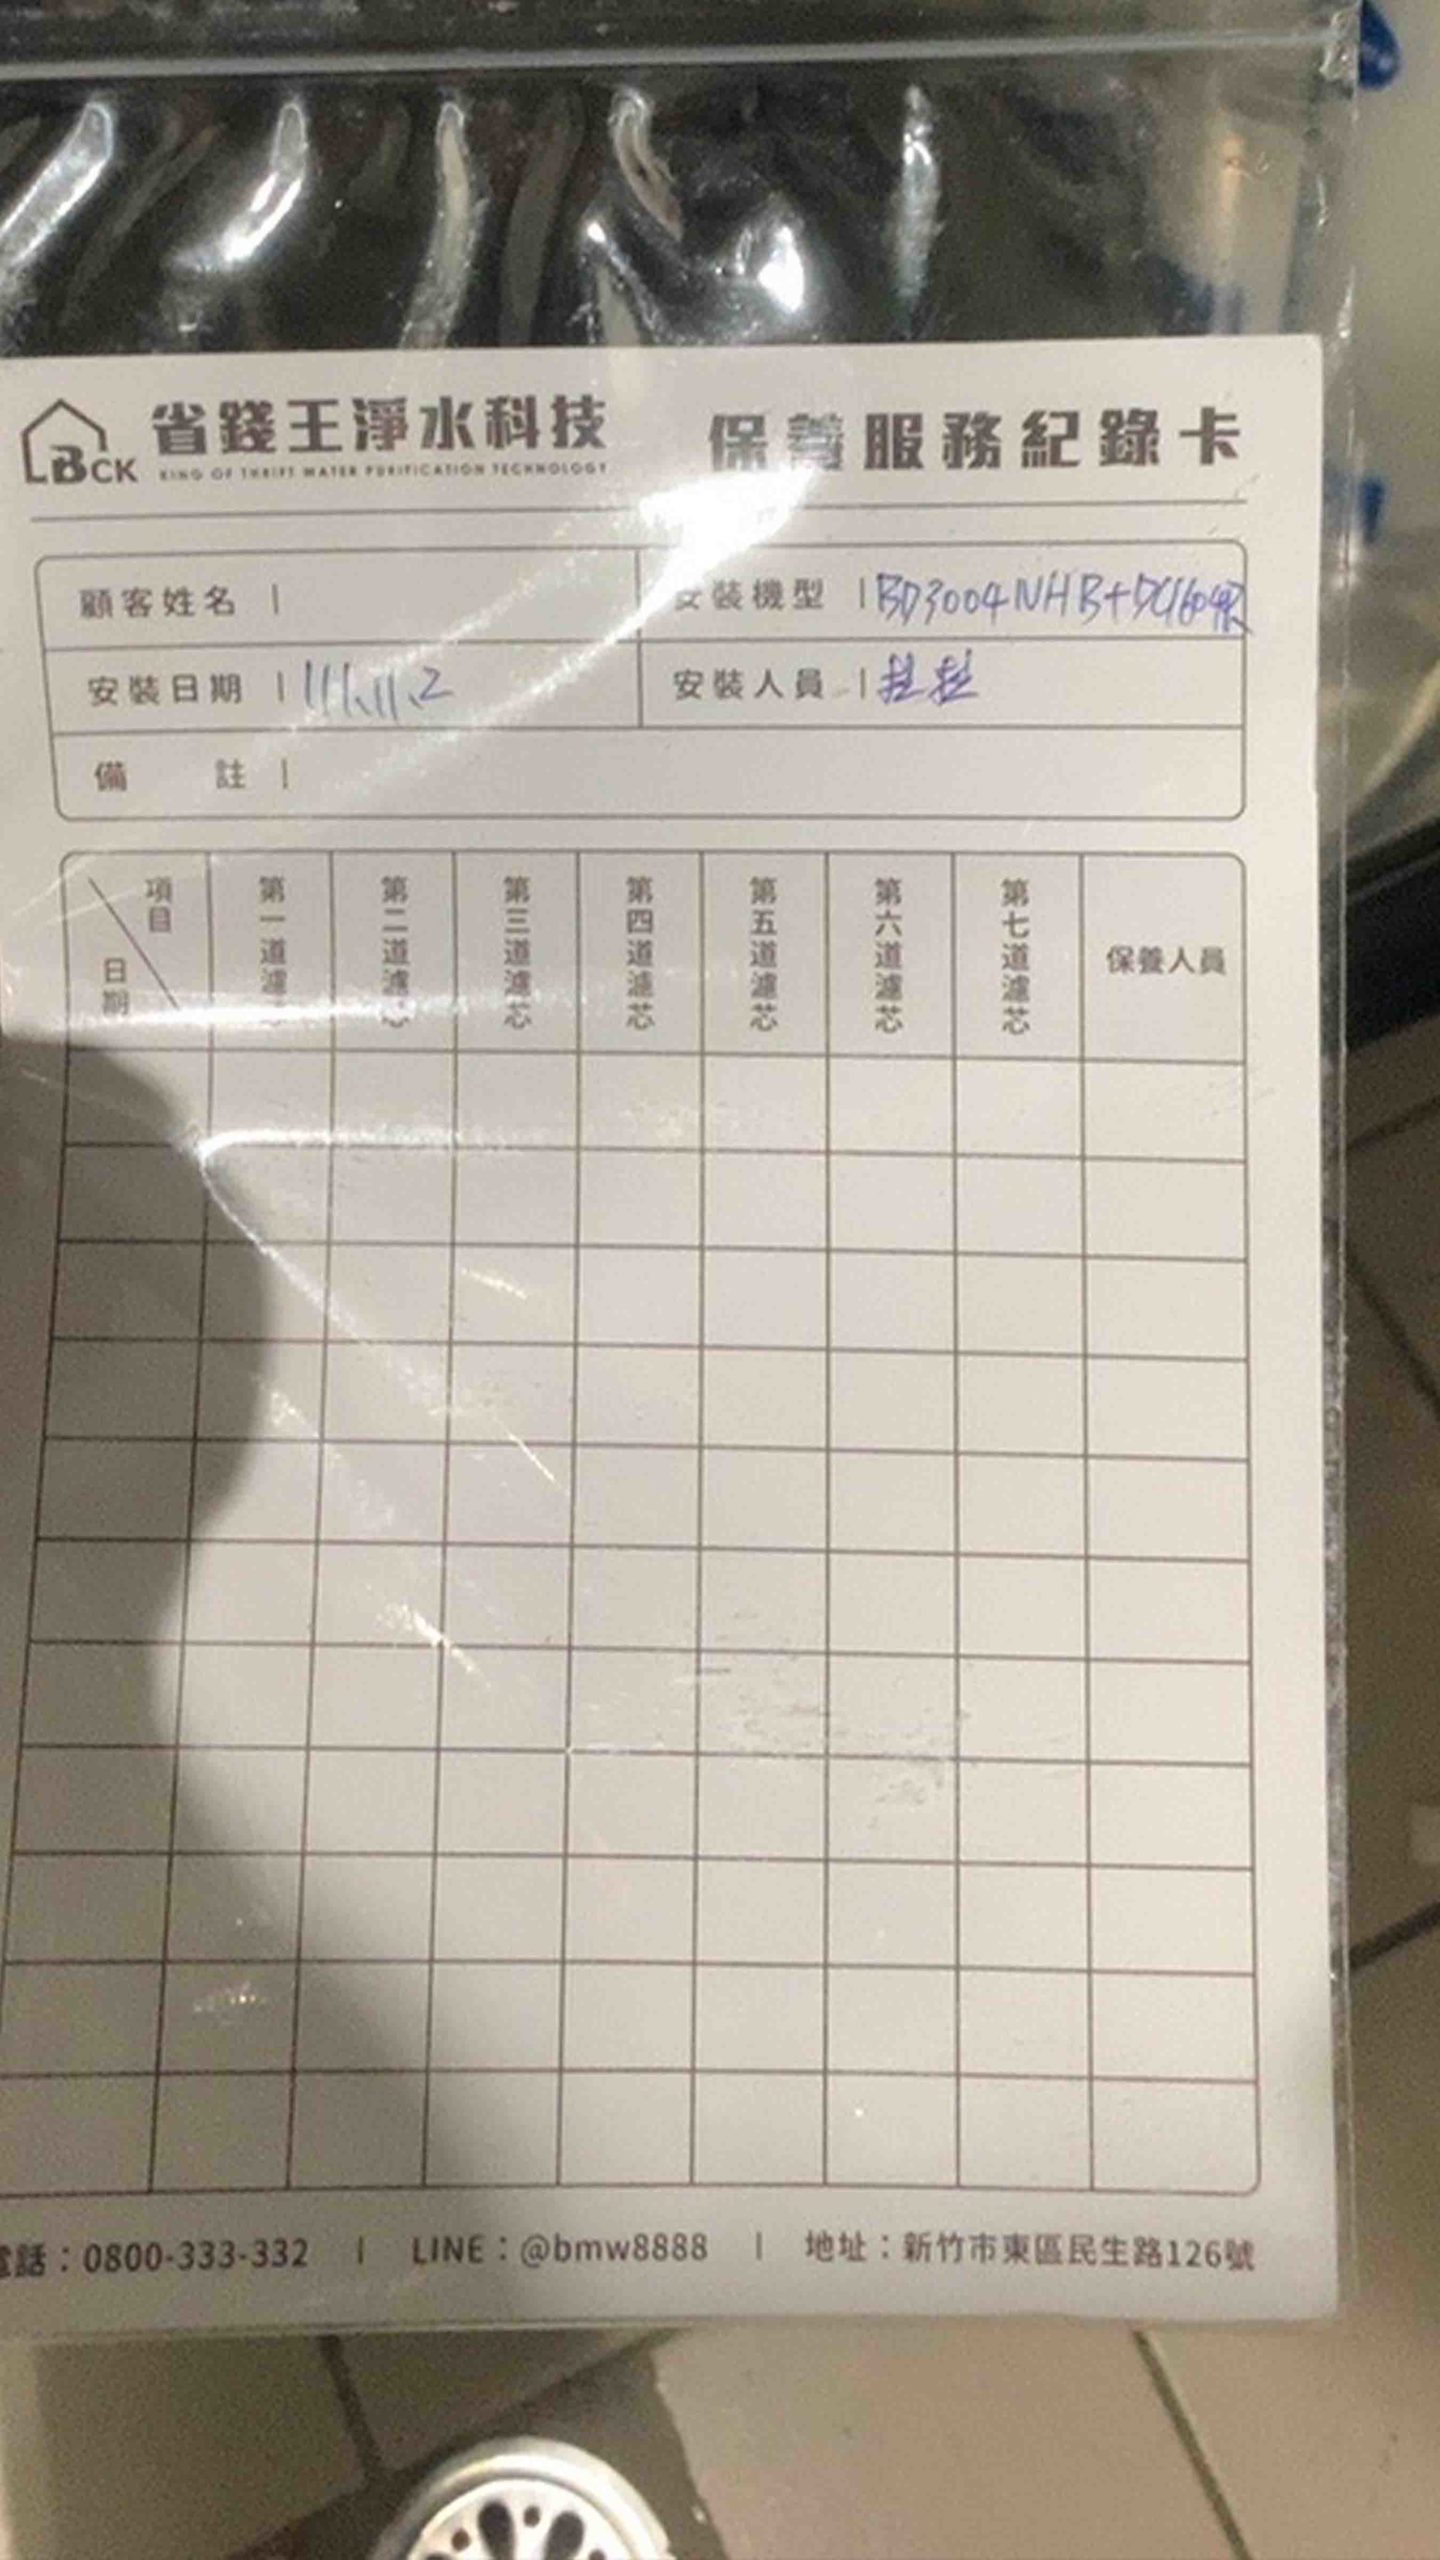 BCK 省錢王淨水科技 保養服務紀錄卡
KING OF THRIFT WATER PURIFICATION TECHNOLOGY
顧客姓名 | 安裝機型 | BD3004NHB+
安裝日期 | 111.11.2 安裝人員 |
備註 |
項目 日期 第一道濾 第二道濾芯 第三道濾芯 第四道濾芯 第五道濾芯 第六道濾芯 第七道濾芯 保養人員
電話：0800-333-332 | LINE：@bmw8888 | 地址：新竹市東區民生路126號